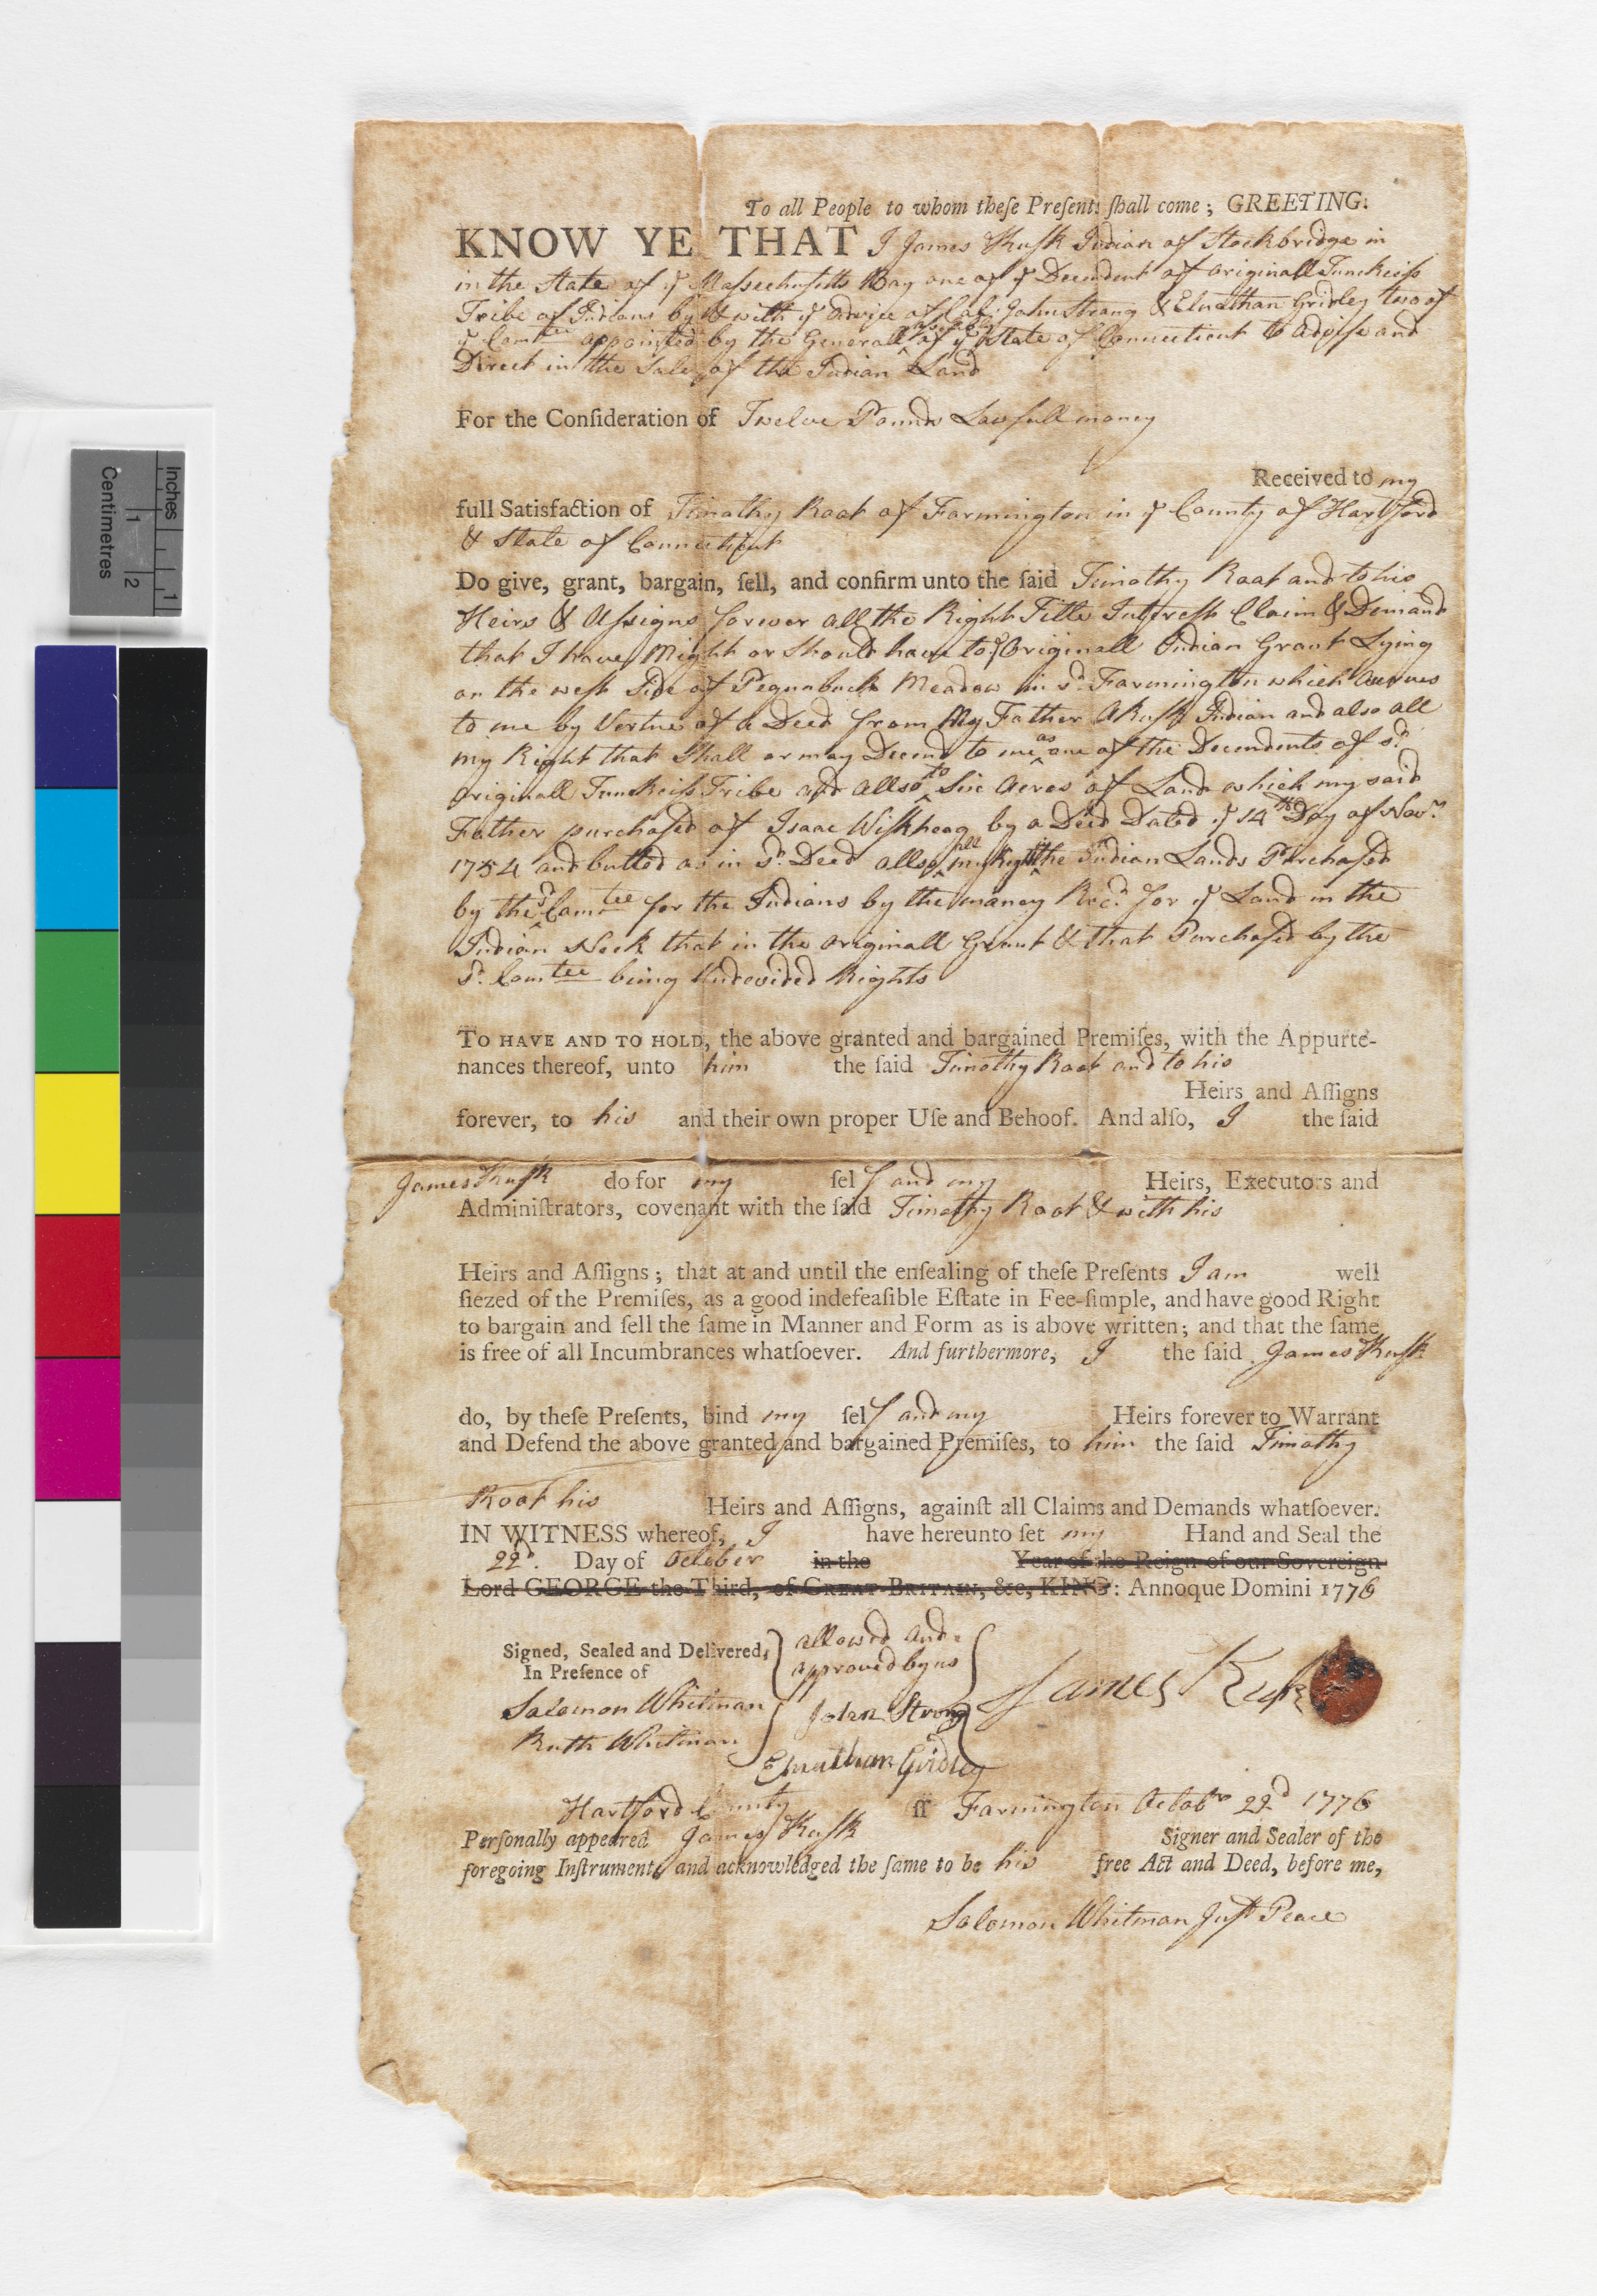 To all People to whom theſe Preſents ſhall come; GREETING.
KNOW YE THAT I James Kuſk Indian of Stockbridge in
in the State of yͤ Maſsechuſetts Bay one of yͤ Decendent of originall Tunckeiſs
Tribe of Indians by & with yͤ advice of Col. John Strong & Elnathan Gridley two of
yͤ Comtee appointed by the Generall aſsembly of yͤ State of Connecticut to adviſe and
Direct in the Sale of the Indian Land
For the Conſideration of Twelve Pounds Lawfull money
Received to my
full Satisfaction of Timothy Root of Farmington in yͤ County of Hartford
& State of Connecticut
Do give, grant, bargain, ſell, and confirm unto the ſaid Timothy Root and to his
Heirs & Aſsigns forever all the Right Title Intereſt Claim & Demand
that I have Might or Should have to yͤ Originall Indian Grant Lying
on the weſt Side of Pequabuck Meadow in sd. Farmington which
to me by Vertue of a Deed from My Father A Kuſk Indian and also all
my Right that Shall or may Decend to me as one of the Decendents of sd.
Originall Tunckeiſs Tribe and allso to Six Acres of Land which my said
Father purchaſed of Isaac Wiſkheag by a Deed Dated yͤ 14th Day of Novr.
1754 and butted as in sd. Deed allso all my Right in the Indian Lands Purchaſed
by the sd Comtee for the Indians by the money Recd. for yͤ Land in the
Indian Neck that in the originall Grant & that Purchaſed by the
sd. Comtee being Undevided Rights
TO HAVE AND TO HOLD, the above granted and bargained Premiſes, with the Appurte-
nances thereof, unto him the ſaid Timothy Root and to his
Heirs and Aſſigns
forever, to his and their own proper Uſe and Behoof. And alſo, I the ſaid
James Kuſk do for my ſelf and my Heirs, Executors and
Adminiſtrators, covenant with the ſaid Timothy Root & with his
Heirs and Aſſigns; that at and until the enſealing of theſe Preſents I am well
ſiezed of the Premiſes, as a good indefeaſible Eſtate in Fee-ſimple, and have good Right
to bargain and ſell the ſame in Manner and Form as is above written; and that the ſame
is free of all Incumbrances whatſoever. And furthermore, I the ſaid James Kuſk
do, by theſe Preſents, bind my ſelf and my Heirs forever to Warrant
and Defend the above granted and bargained Premiſes, to him the ſaid Timothy
Root his Heirs and Aſſigns, againſt all Claims and Demands whatſoever.
IN WITNESS whereof, I have hereunto ſet my Hand and Seal the
22d. Day of October in the Year of the Reign of our Sovereign
Lord GEORGE the Third, of GREAT-BRITAIN, &c, KING: Annoque Domini 1776
Signed, Sealed and Delivered,
In Preſence of
Solomon Whitman
Ruth Whitman
allowed and
approved by us
John Strong
Elnathan Gridley
James Kuſk
Hartford County ſſ Farmington Octobr 22d 1776
Perſonally appeared James Kuſk Signer and Sealer of the
foregoing Inſtrument, and acknowledged the ſame to be his free Act and Deed, before me,
Solomon Whitman Juſt Peace
Inches
1
Centimetres
1
2